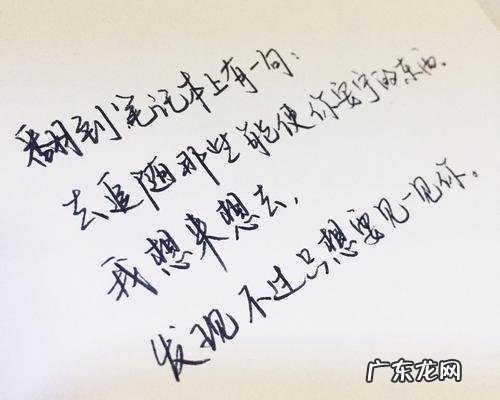 翻到笔记本上有一句:
去追随那些能使你安宁的东西。
我想来想去,
发现不过只想要见一见你。
广东龙网